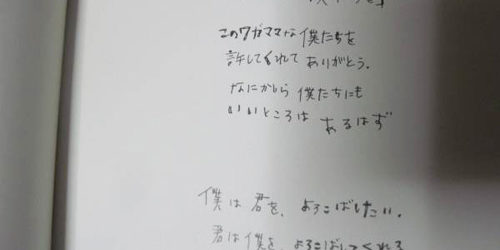 このワガママな僕たちを
許してくれてありがとう.
なにかしら僕たちにも
いいところはあるはず
僕は君を、よろこばしたい.
君は僕を、よろこばしてくれる